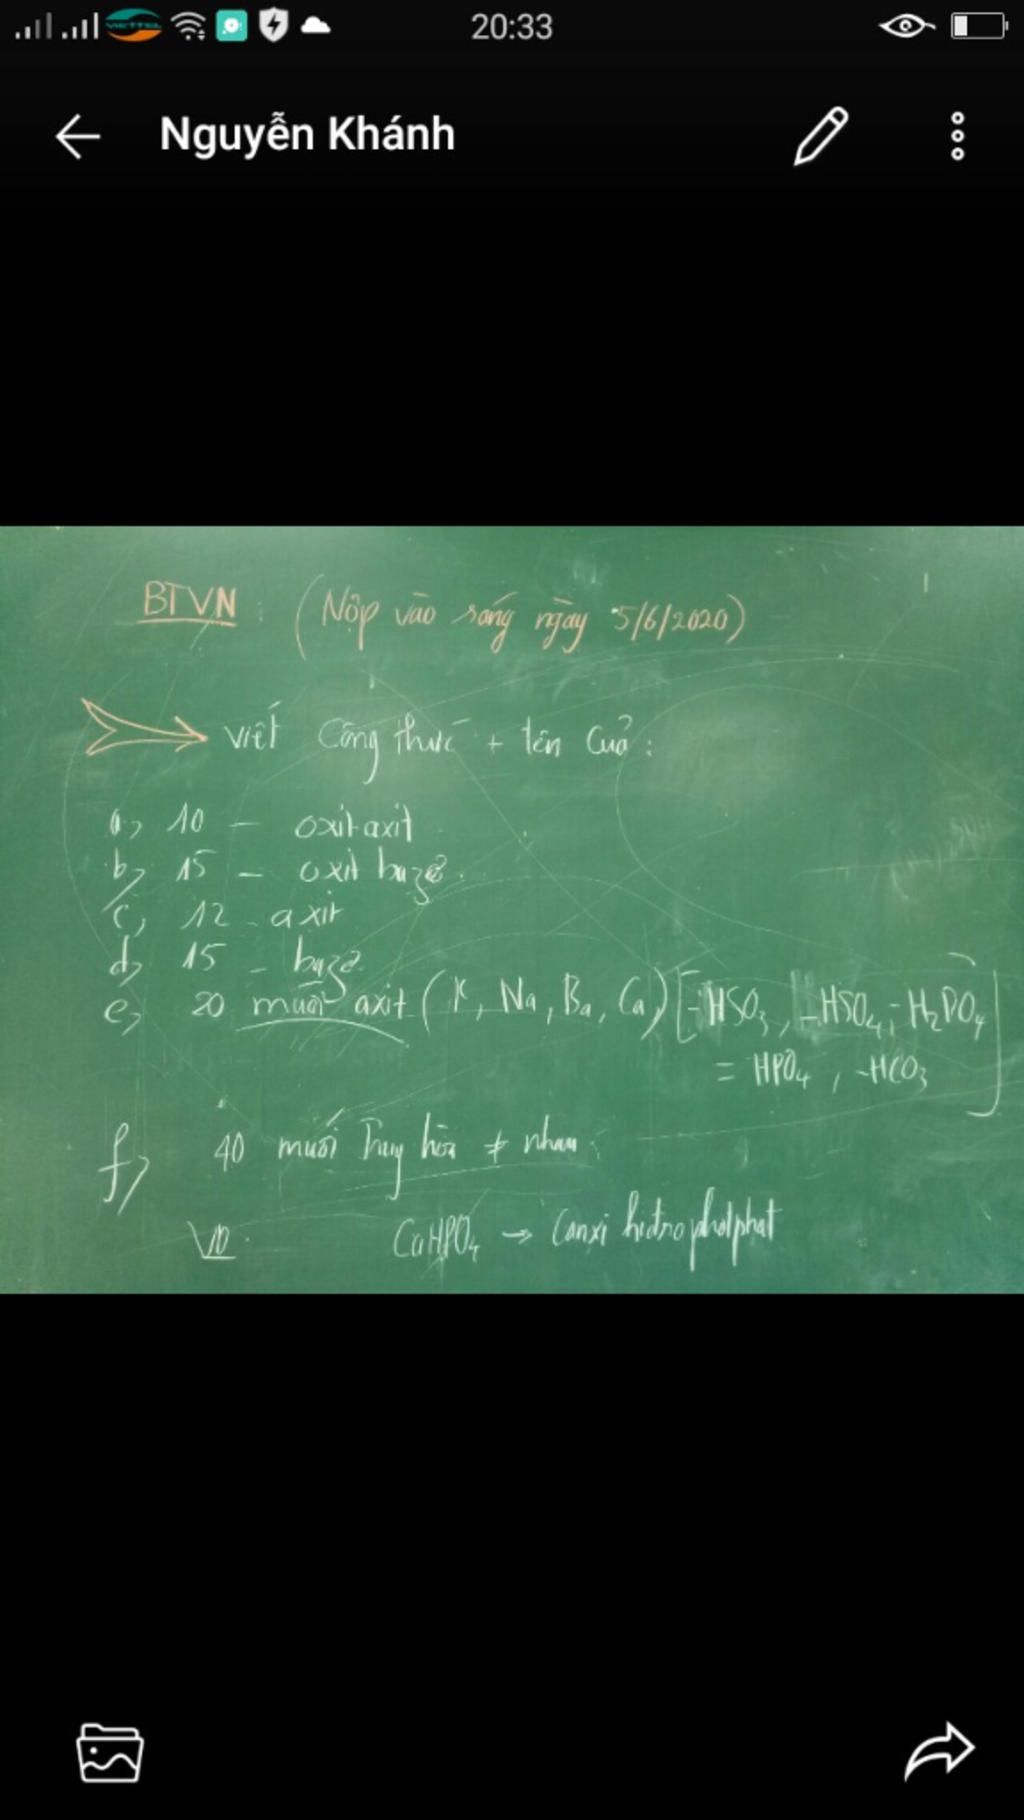 VIETTEL
20:33
Nguyễn Khánh
BTVN : (Nộp vào sáng ngày 5/6/2020)
Viết Công thức + tên của :
a, 10 - oxit axit
b, 15 - oxit bazơ.
c, 12 - axit
d, 15 - bazơ
e, 20 muối axit (K, Na, Ba, Ca) [-HSO3, -HSO4, -H2PO4
= HPO4, -HCO3]
f, 40 muối Trung hòa ≠ nhau :
VD. CaHPO4 → Canxi hiđrophotphat